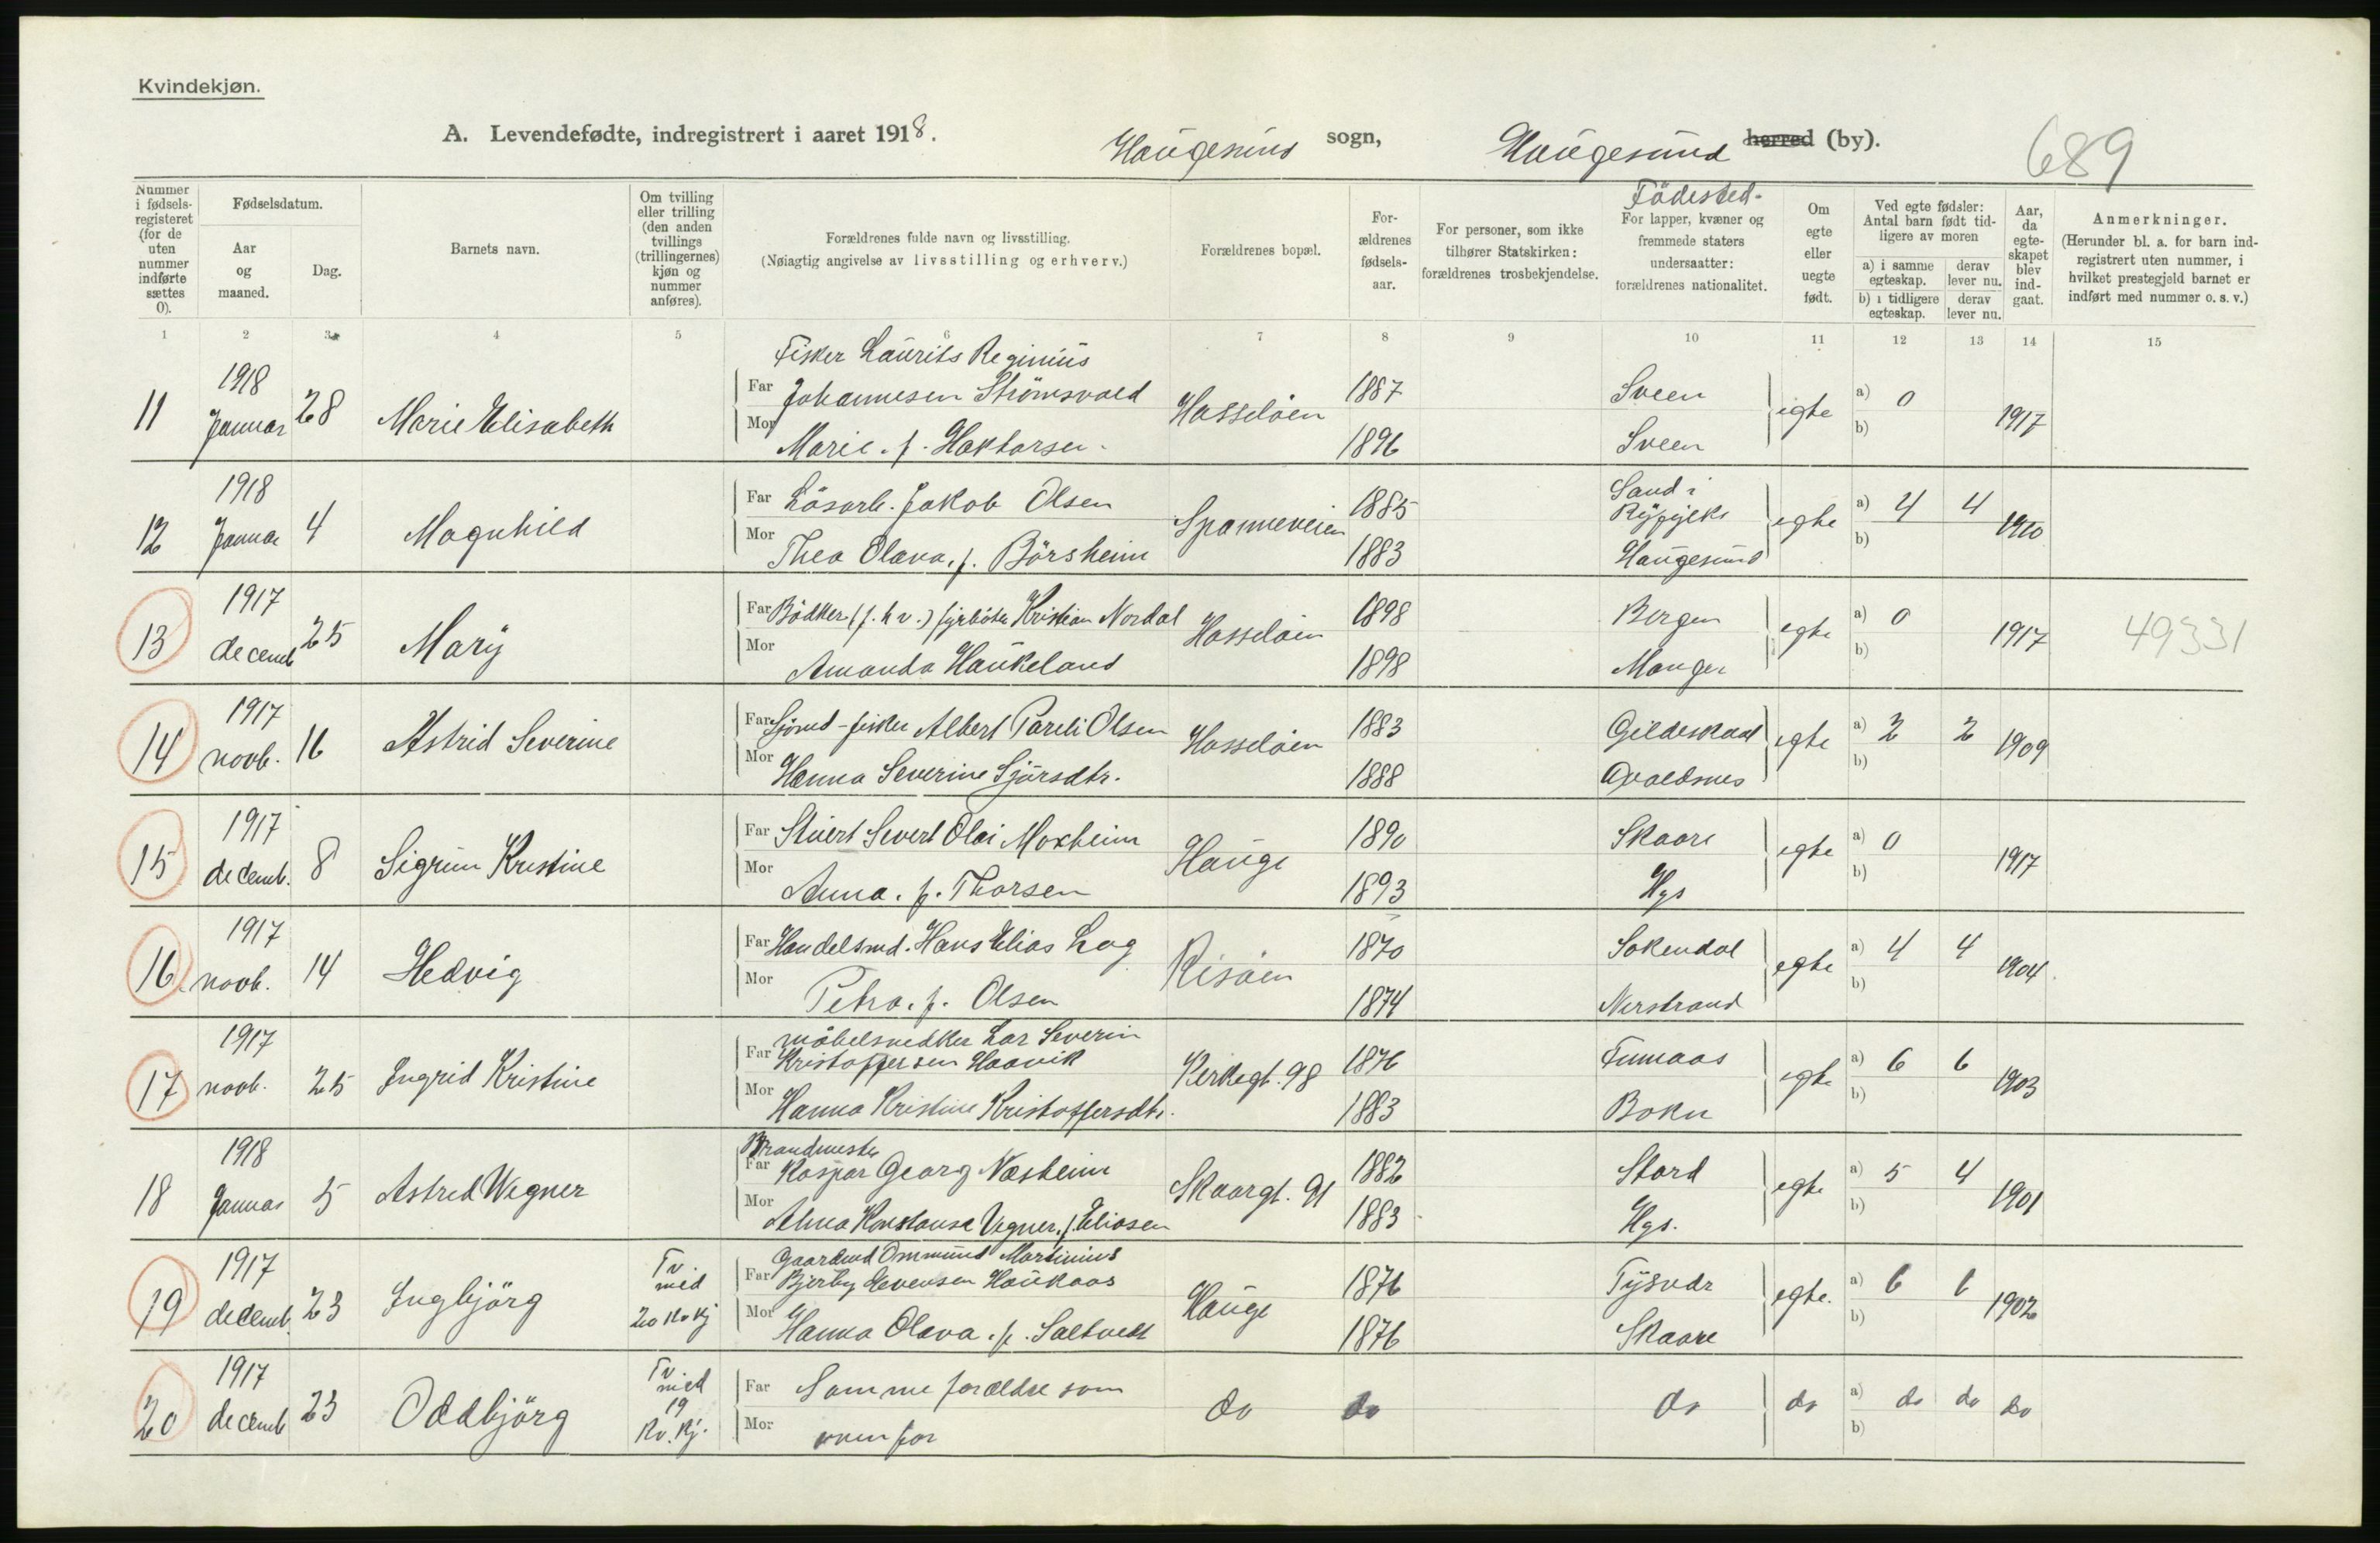 Kvindekjøn.
A. Levendefødte, indregistrert i aaret 1918. Haugesund sogn, Haugesund herred (by). 689
Nummer i fødselsregisteret (for de uten nummer indførte sættes 0).
Fødselsdatum.
Aar og maaned.
Dag.
Barnets navn.
Om tvilling eller trilling (den anden tvillings (trillingernes) kjøn og nummer anføres).
Forældrenes fulde navn og livsstilling.
(Nøiagtig angivelse av livsstilling og erhverv.)
Forældrenes bopæl.
Forældrenes fødselsaar.
For personer, som ikke tilhører Statskirken: forældrenes trosbekjendelse.
Födested.
For lapper, kvæner og fremmede staters undersaatter: forældrenes nationalitet.
Om egte eller uegte født.
Ved egte fødsler: Antal barn født tidligere av moren
a) i samme egteskap. derav lever nu.
b) i tidligere egteskap. derav lever nu.
Aar, da egteskapet blev indgaat.
Anmerkninger.
(Herunder bl. a. for barn indregistrert uten nummer, i hvilket prestegjeld barnet er indført med nummer o. s. v.)
1 2 3 4 5 6 7 8 9 10 11 12 13 14 15
Fisker Laurits Reginius
11 1918 Januar 28 Marie Elisabeth Far Johannesen Strömsvold Hasselöen 1887 Sveen egte a) 0 1917
Mor Marie f. Haktorsen 1896 Sveen b)
12 1918 Januar 4 Magnhild Far Lösarb. Jakob Olsen Spanneveien 1885 Sand i Ryfylke egte a) 4 4 1910
Mor Thea Olava, f. Börsheim 1883 Haugesund b)
13 1917 decemb 25 Mary Far Bödker (f. h v.) fyrböter Kristian Nordal Hasselöen 1898 Bergen egte a) 0 1917 49331
Mor Amanda Haukeland 1898 Manger b)
14 1917 novb. 16 Astrid Severine Far Sjömd - fisker Albert Pareli Olsen Hasselöen 1883 Gildeskaal egte a) 2 2 1909
Mor Hanna Severine Sjursdtr. 1888 Avaldsnes b)
15 1917 decemb. 8 Sigrun Kristine Far Stuert Severt Olai Moxheim Hauge 1890 Skaare egte a) 0 1917
Mor Anna. f. Thorsen 1893 Hgs b)
16 1917 novb. 14 Hedvig Far Handelsmd. Hans Elias Log Risöen 1870 Sokendal egte a) 4 4 1904
Mor Petra. f. Olsen 1874 Nerstrand b)
möbelsnedker Lar Severin
17 1917 novb. 25 Ingrid Kristine Far Kristoffersen Haavik Kirkegt. 98 1876 Fumaas egte a) 6 6 1903
Mor Hanna Kristine Kristoffersdtr. 1883 Bokn b)
Brandmester
18 1918 Januar 5 Astred Wegner Far Kaspar Georg Næsheim Skaargt. 91 1882 Stord egte a) 5 4 1901
Mor Alma Konstanse Vegner, f. Eliasen 1883 Hgs. b)
Gaardmd Ommund Martinius
19 1917 decemb. 23 Ingbjörg Tv. med 20 Kv Kj Far Bjerby Evensen Haukaas Hauge 1876 Tysvær egte. a) 6 6 1902
Mor Hanna Olava. f. Saltvedt 1876 Skaare b)
20 1917 decemb 23 Oddbjörg Tv. med 19 Kv. Kj. Far Samme foreldre som do do do do a) do do do
Mor ovenfor b)